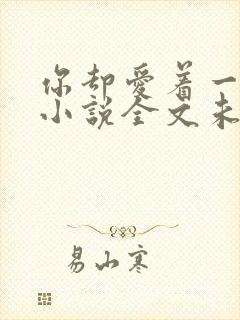 你却爱着一
小說全文未
易山寒